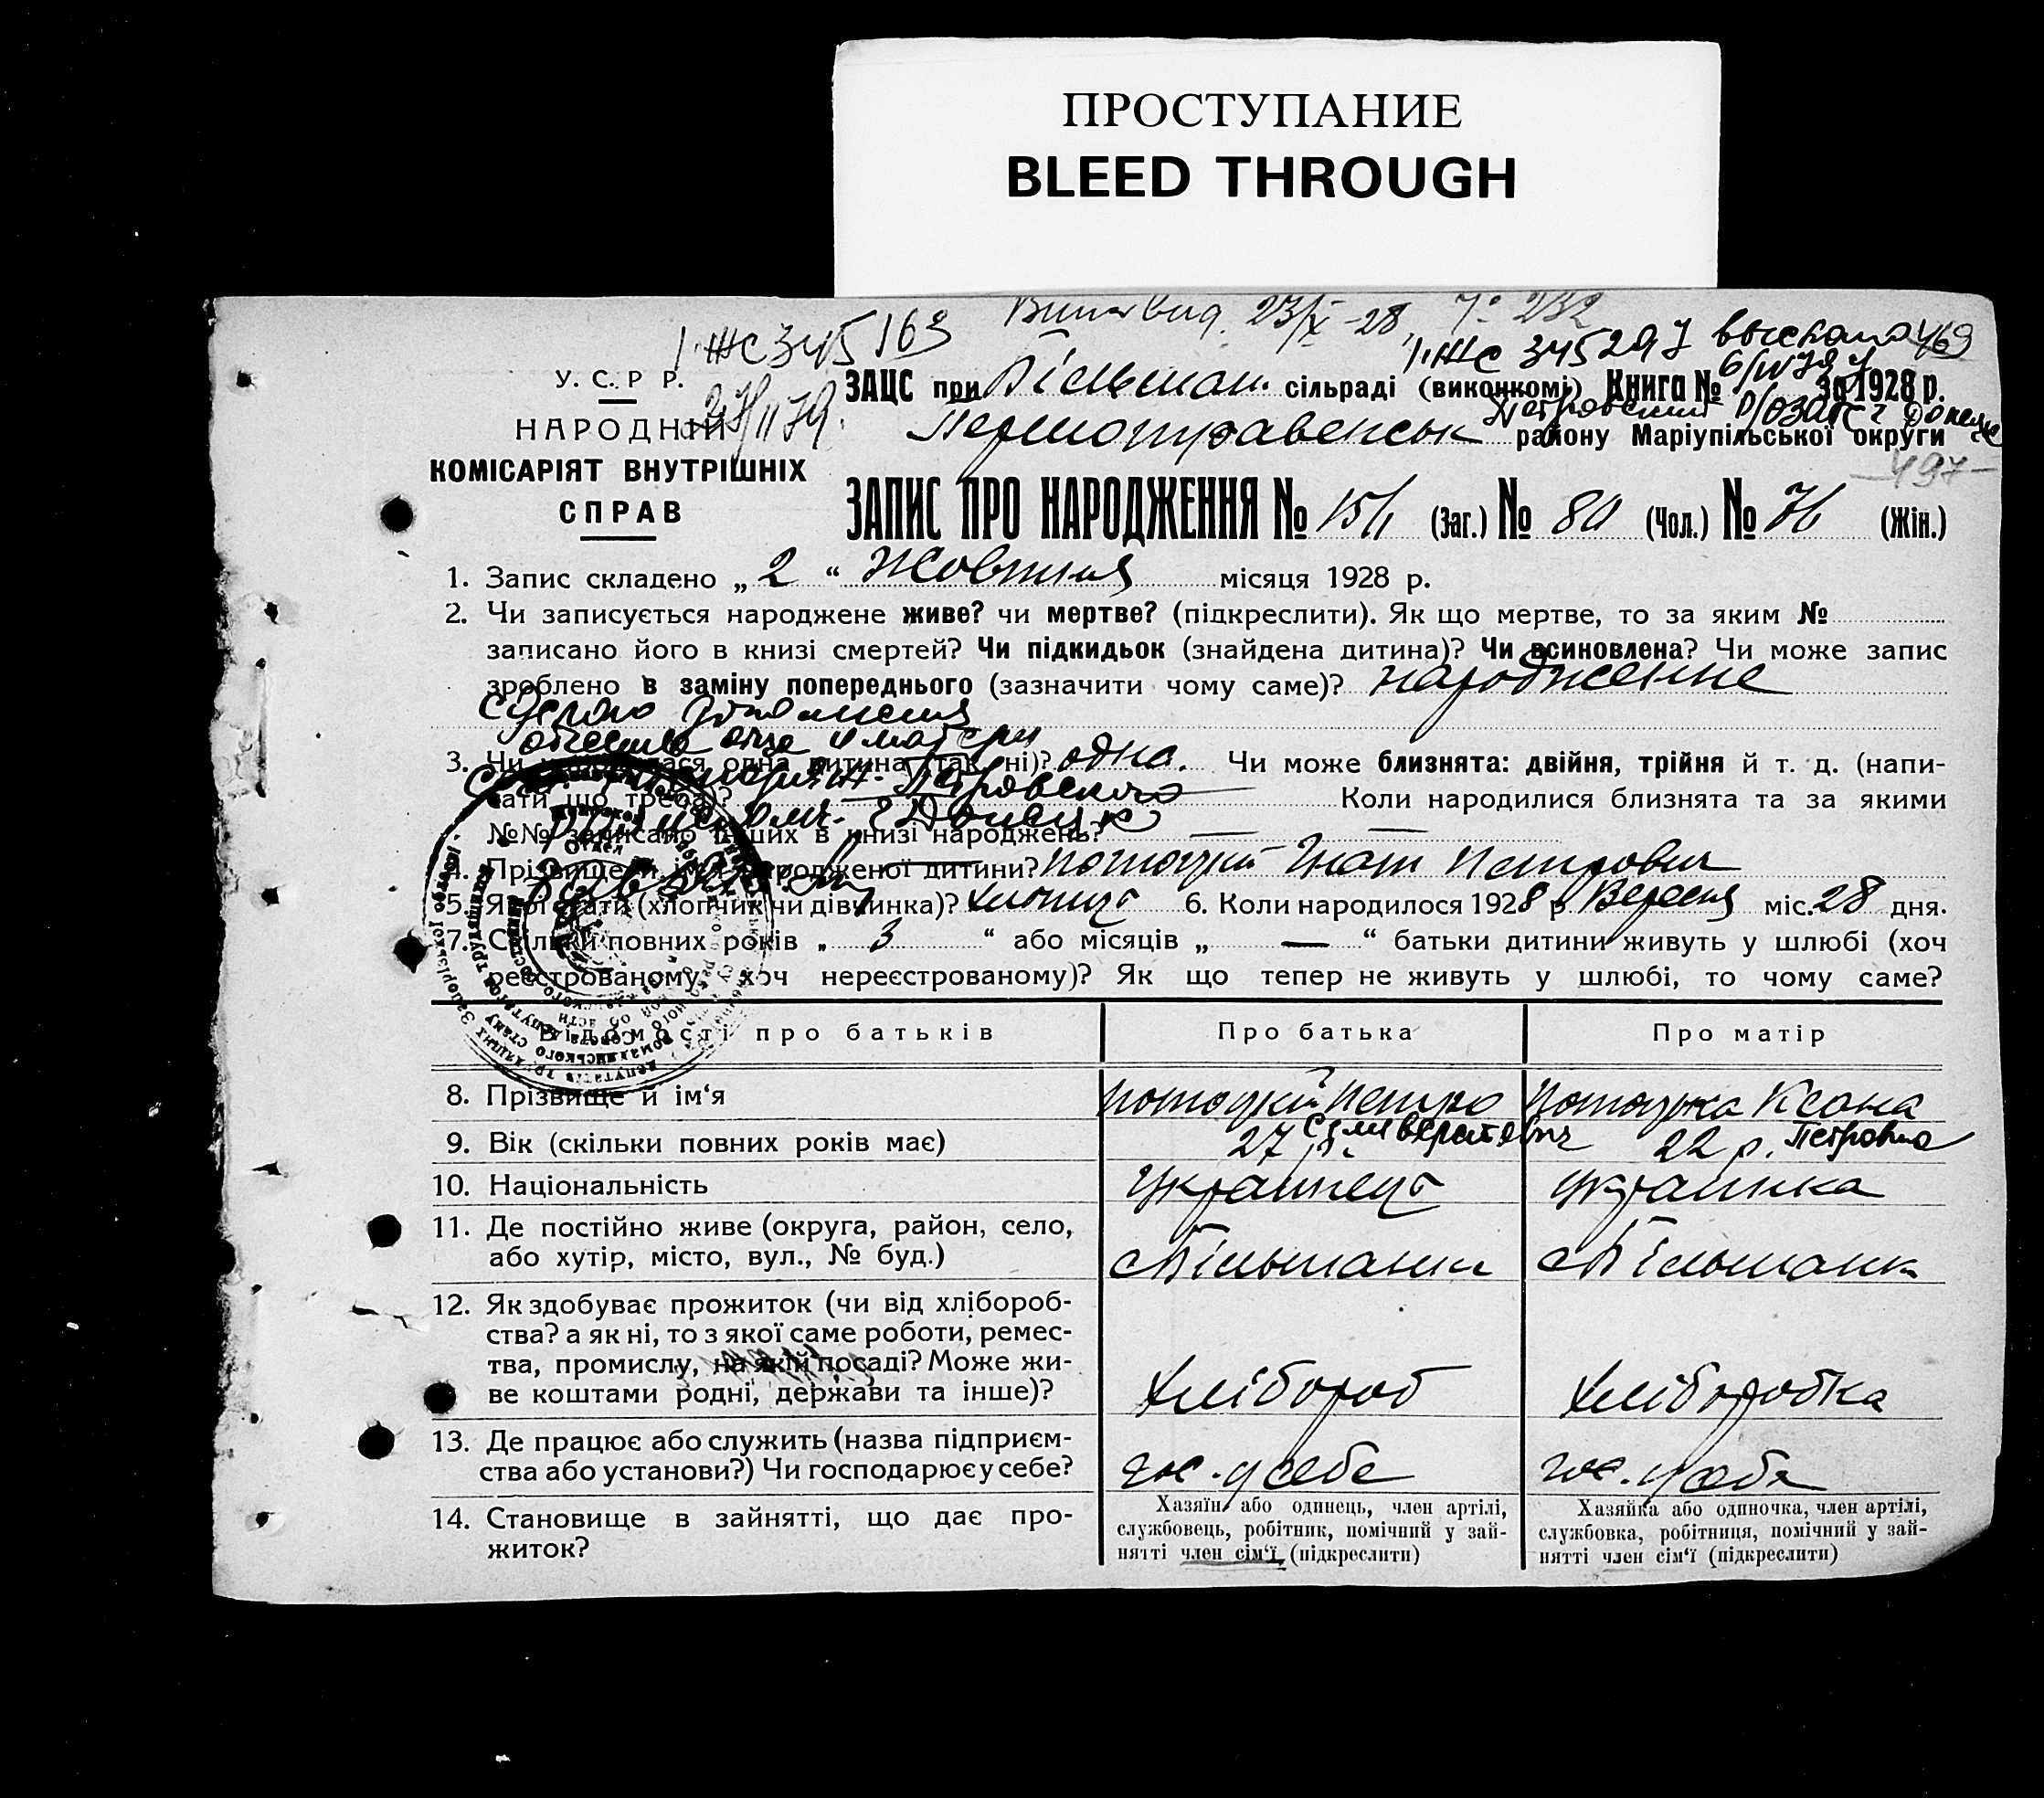 ПРОСТУПАНИЕ
BLEED THROUGH
23/X-28. 232
I ЖС 345163
27/II 79.
I ЖС 345297 выслано 469
6/IV 79
Петровский р/о ЗАГС г Донецк
497-
У. С. Р Р.
НАРОДНІЙ
КОМІСАРІЯТ ВНУТРІШНІХ
СПРАВ
ЗАЦС при Більман. сільраді (виконкомі) Книга № за 1928 р.
району Маріупільської округи
ЗАПИС ПРО НАРОДЖЕННЯ № (Заг.) № 80 (Чол.) № 76 (Жін.)
1. Запис складено „ 2 “ Жовтня місяця 1928 р.
2. Чи записується народжене живе? чи мертве? (підкреслити). Як що мертве, то за яким №
записано його в книзі смертей? Чи підкидьок (знайдена дитина)? Чи всиновлена? Чи може запис
зроблено в заміну попереднього (зазначити чому саме)? народженне
отчества отца и матери
3. Чи народилася одна дитина (так, ні)? одна. Чи може близнята: двійня, трійня й т. д. (напи-
сати що треба)? — Коли народилися близнята та за якими
Петровского
г Донецк
№№ записано інших в книзі народжень? — —
4. Прізвище й ім'я народженої дитини? Потоцкий Гнат Петрович
5. Якої статі (хлопчик чи дівчинка)? хлопиць 6. Коли народилося 1928 р. Вересня міс. 28 дня.
7. Скільки повних років „ 3 “ або місяців „ — “ батьки дитини живуть у шлюбі (хоч
реєстрованому, хоч нереєстрованому)? Як що тепер не живуть у шлюбі, то чому саме?
Відомості про батьків Про батька Про матір
8. Прізвище й ім‘я Потоцкий Петро Потоцька Ксеня
Селиверстович Петровна
9. Вік (скільки повних років має) 27 р. 22 р.
10. Національність Українець Українка
11. Де постійно живе (округа, район, село,
або хутір, місто, вул., № буд.) с Більманка с Більманка
12. Як здобуває прожиток (чи від хлібороб-
ства? а як ні, то з якої саме роботи, ремес-
тва, промислу, на якій посаді? Може жи-
ве коштами родні, держави та інше)? Хлібороб Хліборобка
13. Де працює або служить (назва підприєм-
ства або установи?) Чи господарює у себе? гос. у себе гос. у себе
14. Становище в зайнятті, що дає про-
житок?
Хазяїн або одинець, член артілі,
службовець, робітник, помічний у зай-
нятті член сім‘ї (підкреслити)
Хазяйка або одиночка, член артілі,
службовка, робітниця, помічний у зай-
нятті член сім‘ї (підкреслити)